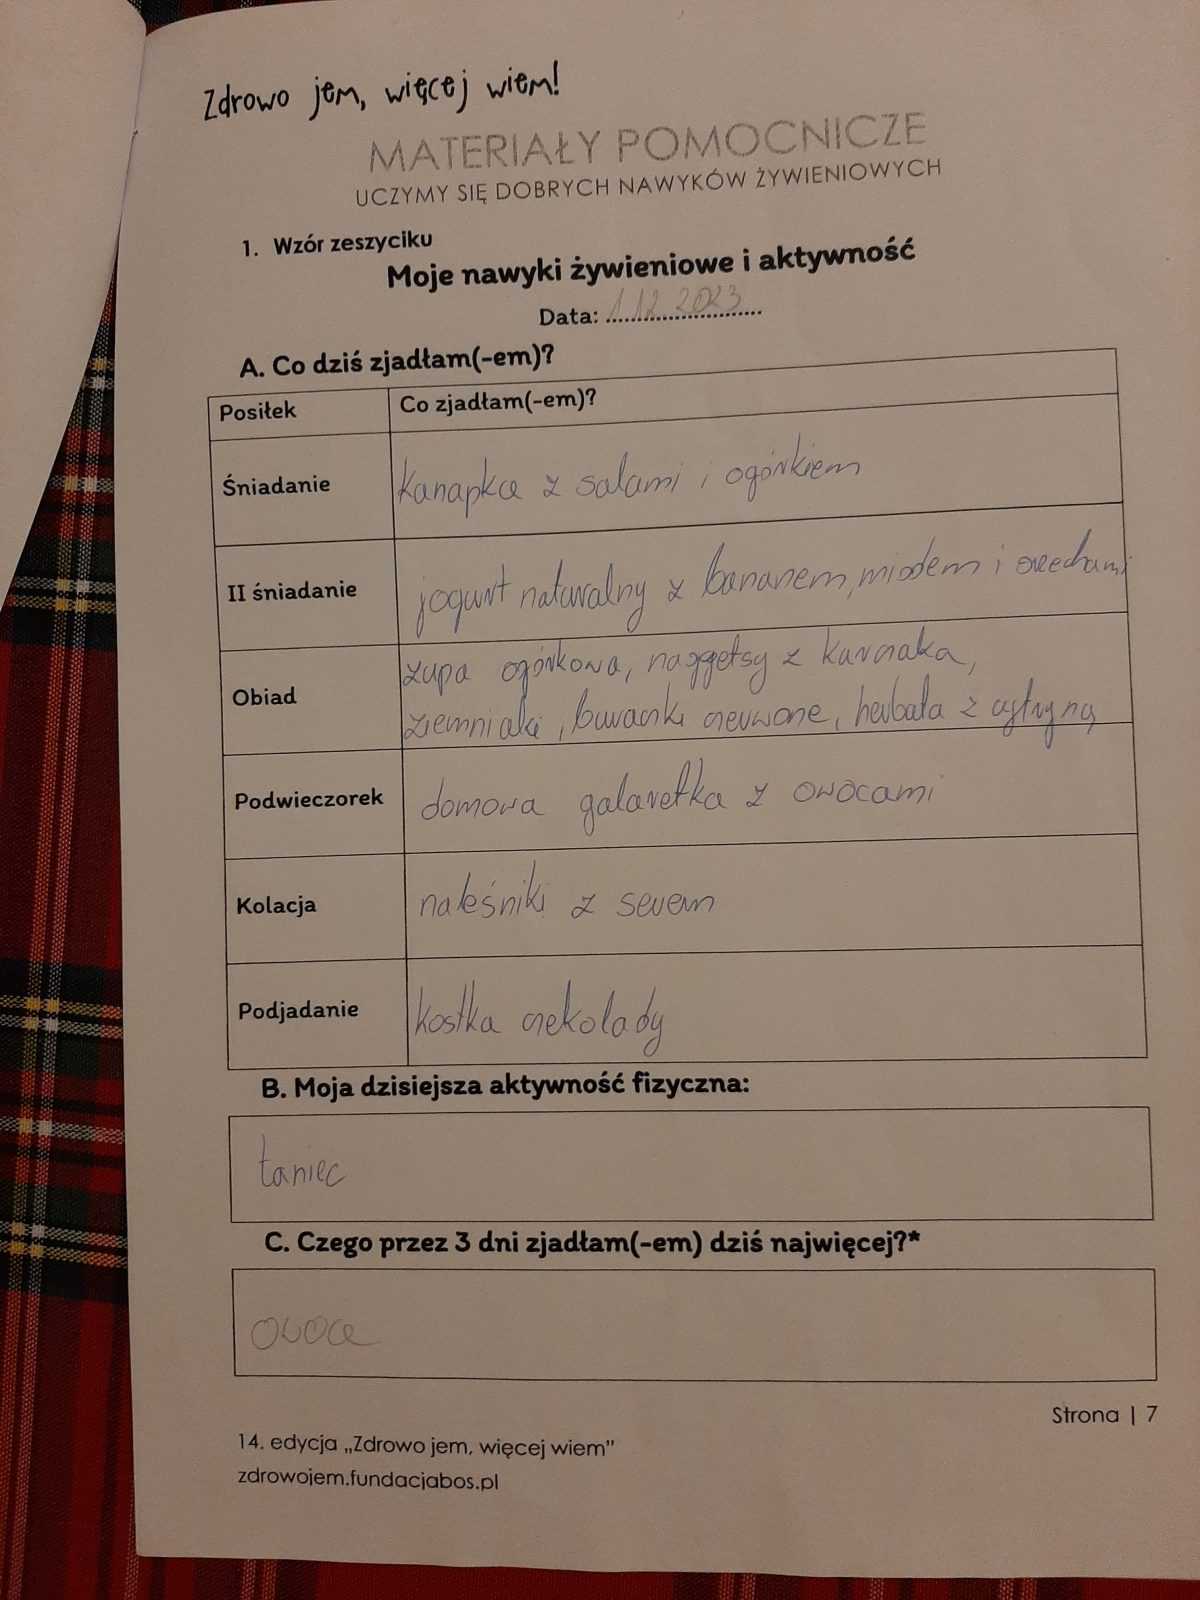 Zdrowo jem, więcej wiem!
MATERIAŁY POMOCNICZE
UCZYMY SIĘ DOBRYCH NAWYKÓW ŻYWIENIOWYCH
1. Wzór zeszyciku
Moje nawyki żywieniowe i aktywność
Data: 1.12.2023
A. Co dziś zjadłam(-em)?
Posiłek Co zjadłam(-em)?
Śniadanie kanapka z salami i ogórkiem
II śniadanie jogurt naturalny z bananem, miodem i orzechami
Obiad zupa ogórkowa, naggetsy z kurczaka,
ziemniaki, buraczki czerwone, herbata z cytryną
Podwieczorek domowa galaretka z owocami
Kolacja naleśniki z serem
Podjadanie kostka czekolady
B. Moja dzisiejsza aktywność fizyczna:
taniec
C. Czego przez 3 dni zjadłam(-em) dziś najwięcej?*
owoce
Strona | 7
14. edycja „Zdrowo jem, więcej wiem”
zdrowojem.fundacjabos.pl